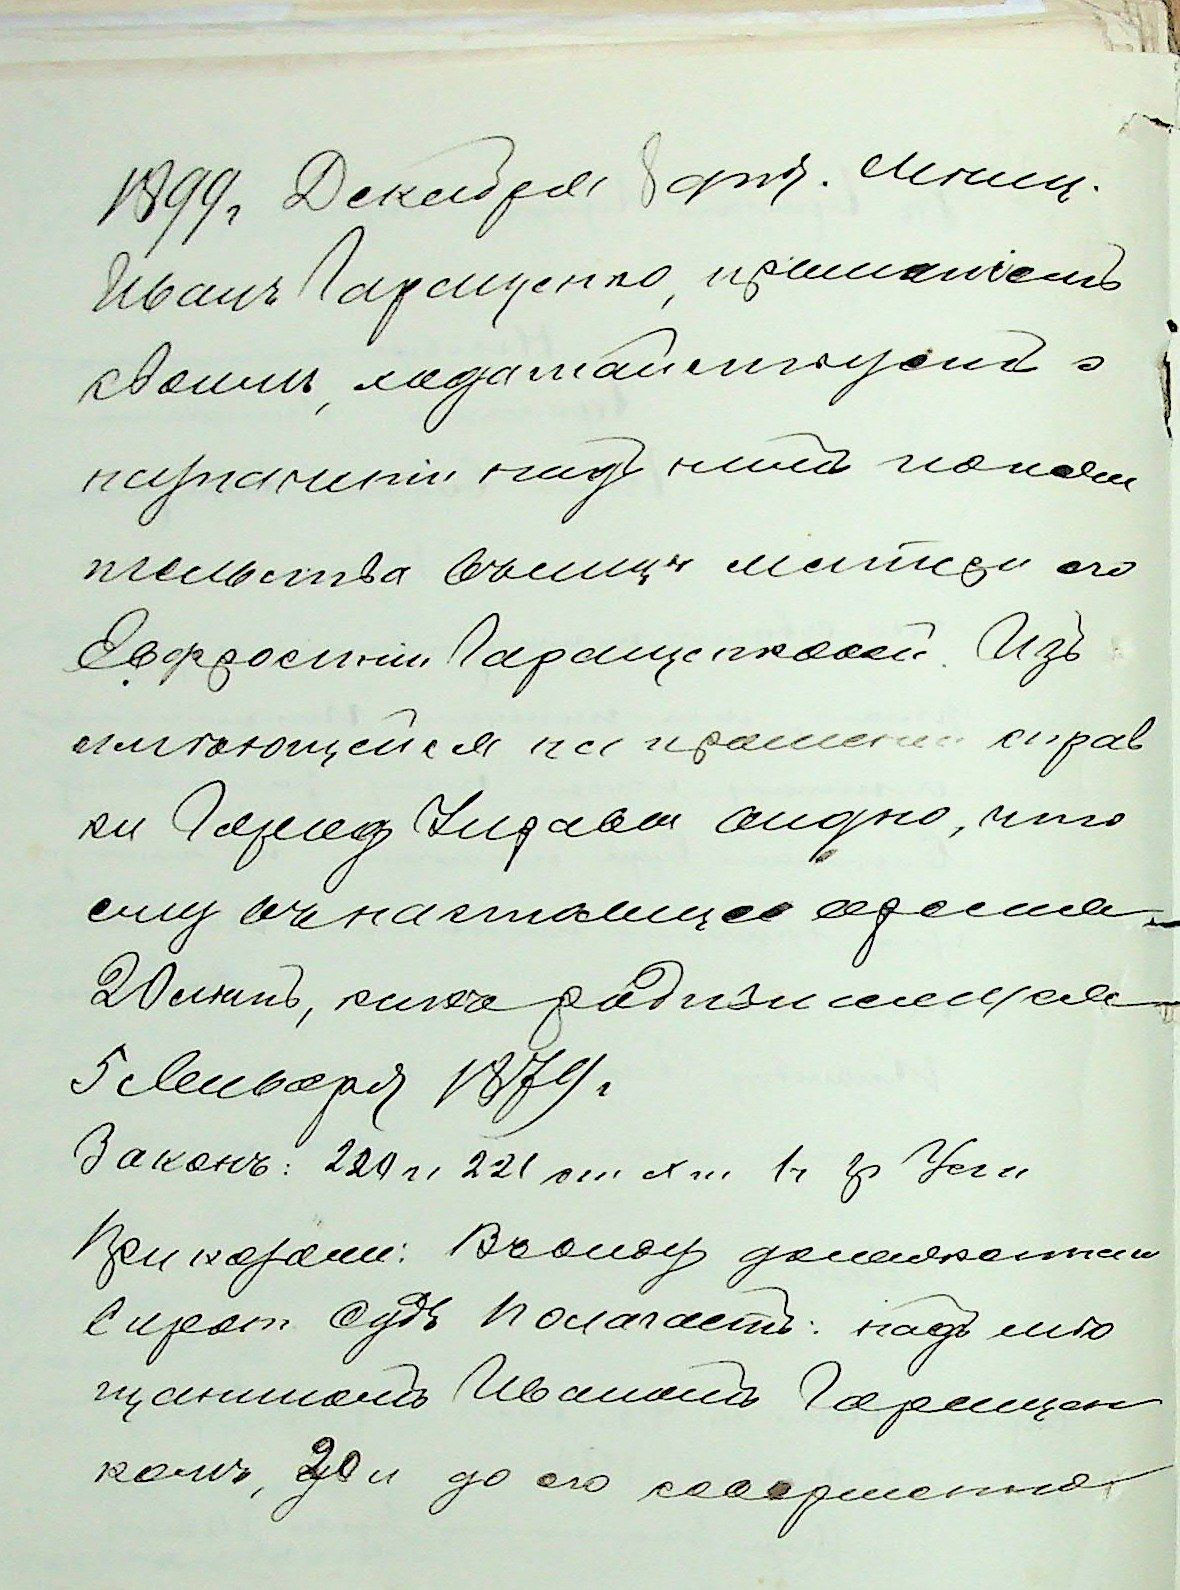 1899г. Декабря 8 дня. Мѣщ.
Иванъ Гаращенко, прошеніемъ
своимъ, ходатайствуетъ о
назначеніи надъ нимъ попечи
тельства въ лицѣ матери его
Евфросиніи Гаращенковой. Изъ
имѣющейся на прошеніи справ
ки Город Управы видно, что
ему въ настоящее время
20 лѣтъ, какъ родившемуся
5 Января 1879 г
Законъ: 220 и 221 ст Х т 1 ч гр
Приказали: Въ виду
Сирот Судъ полагаетъ: надъ мѣ
щаниномъ Иваномъ Гаращен
комъ, 20 л до его совершенно